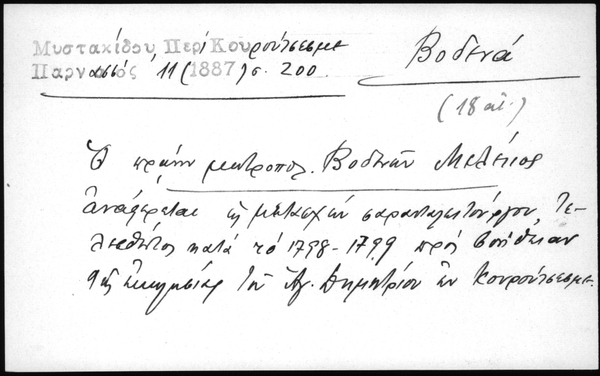 Μυστακίδου Περὶ Κουρούτσεσμε
Παρνασσός 11 (1887) σ. 200
Βοδενά
(18 αἰ.)
Ὁ πρώην μητροπολ. Βοδενῶν Μελέτιος
ἀναφέρεται ὡς μετασχών σαρανταλειτούργου, τε-
λεσθέντος κατά τό 1798-1799 πρός βοήθειαν
τῆς ἐκκλησίας τοῦ Ἁγ. Δημητρίου ἐν Κουρούτσεσμε.